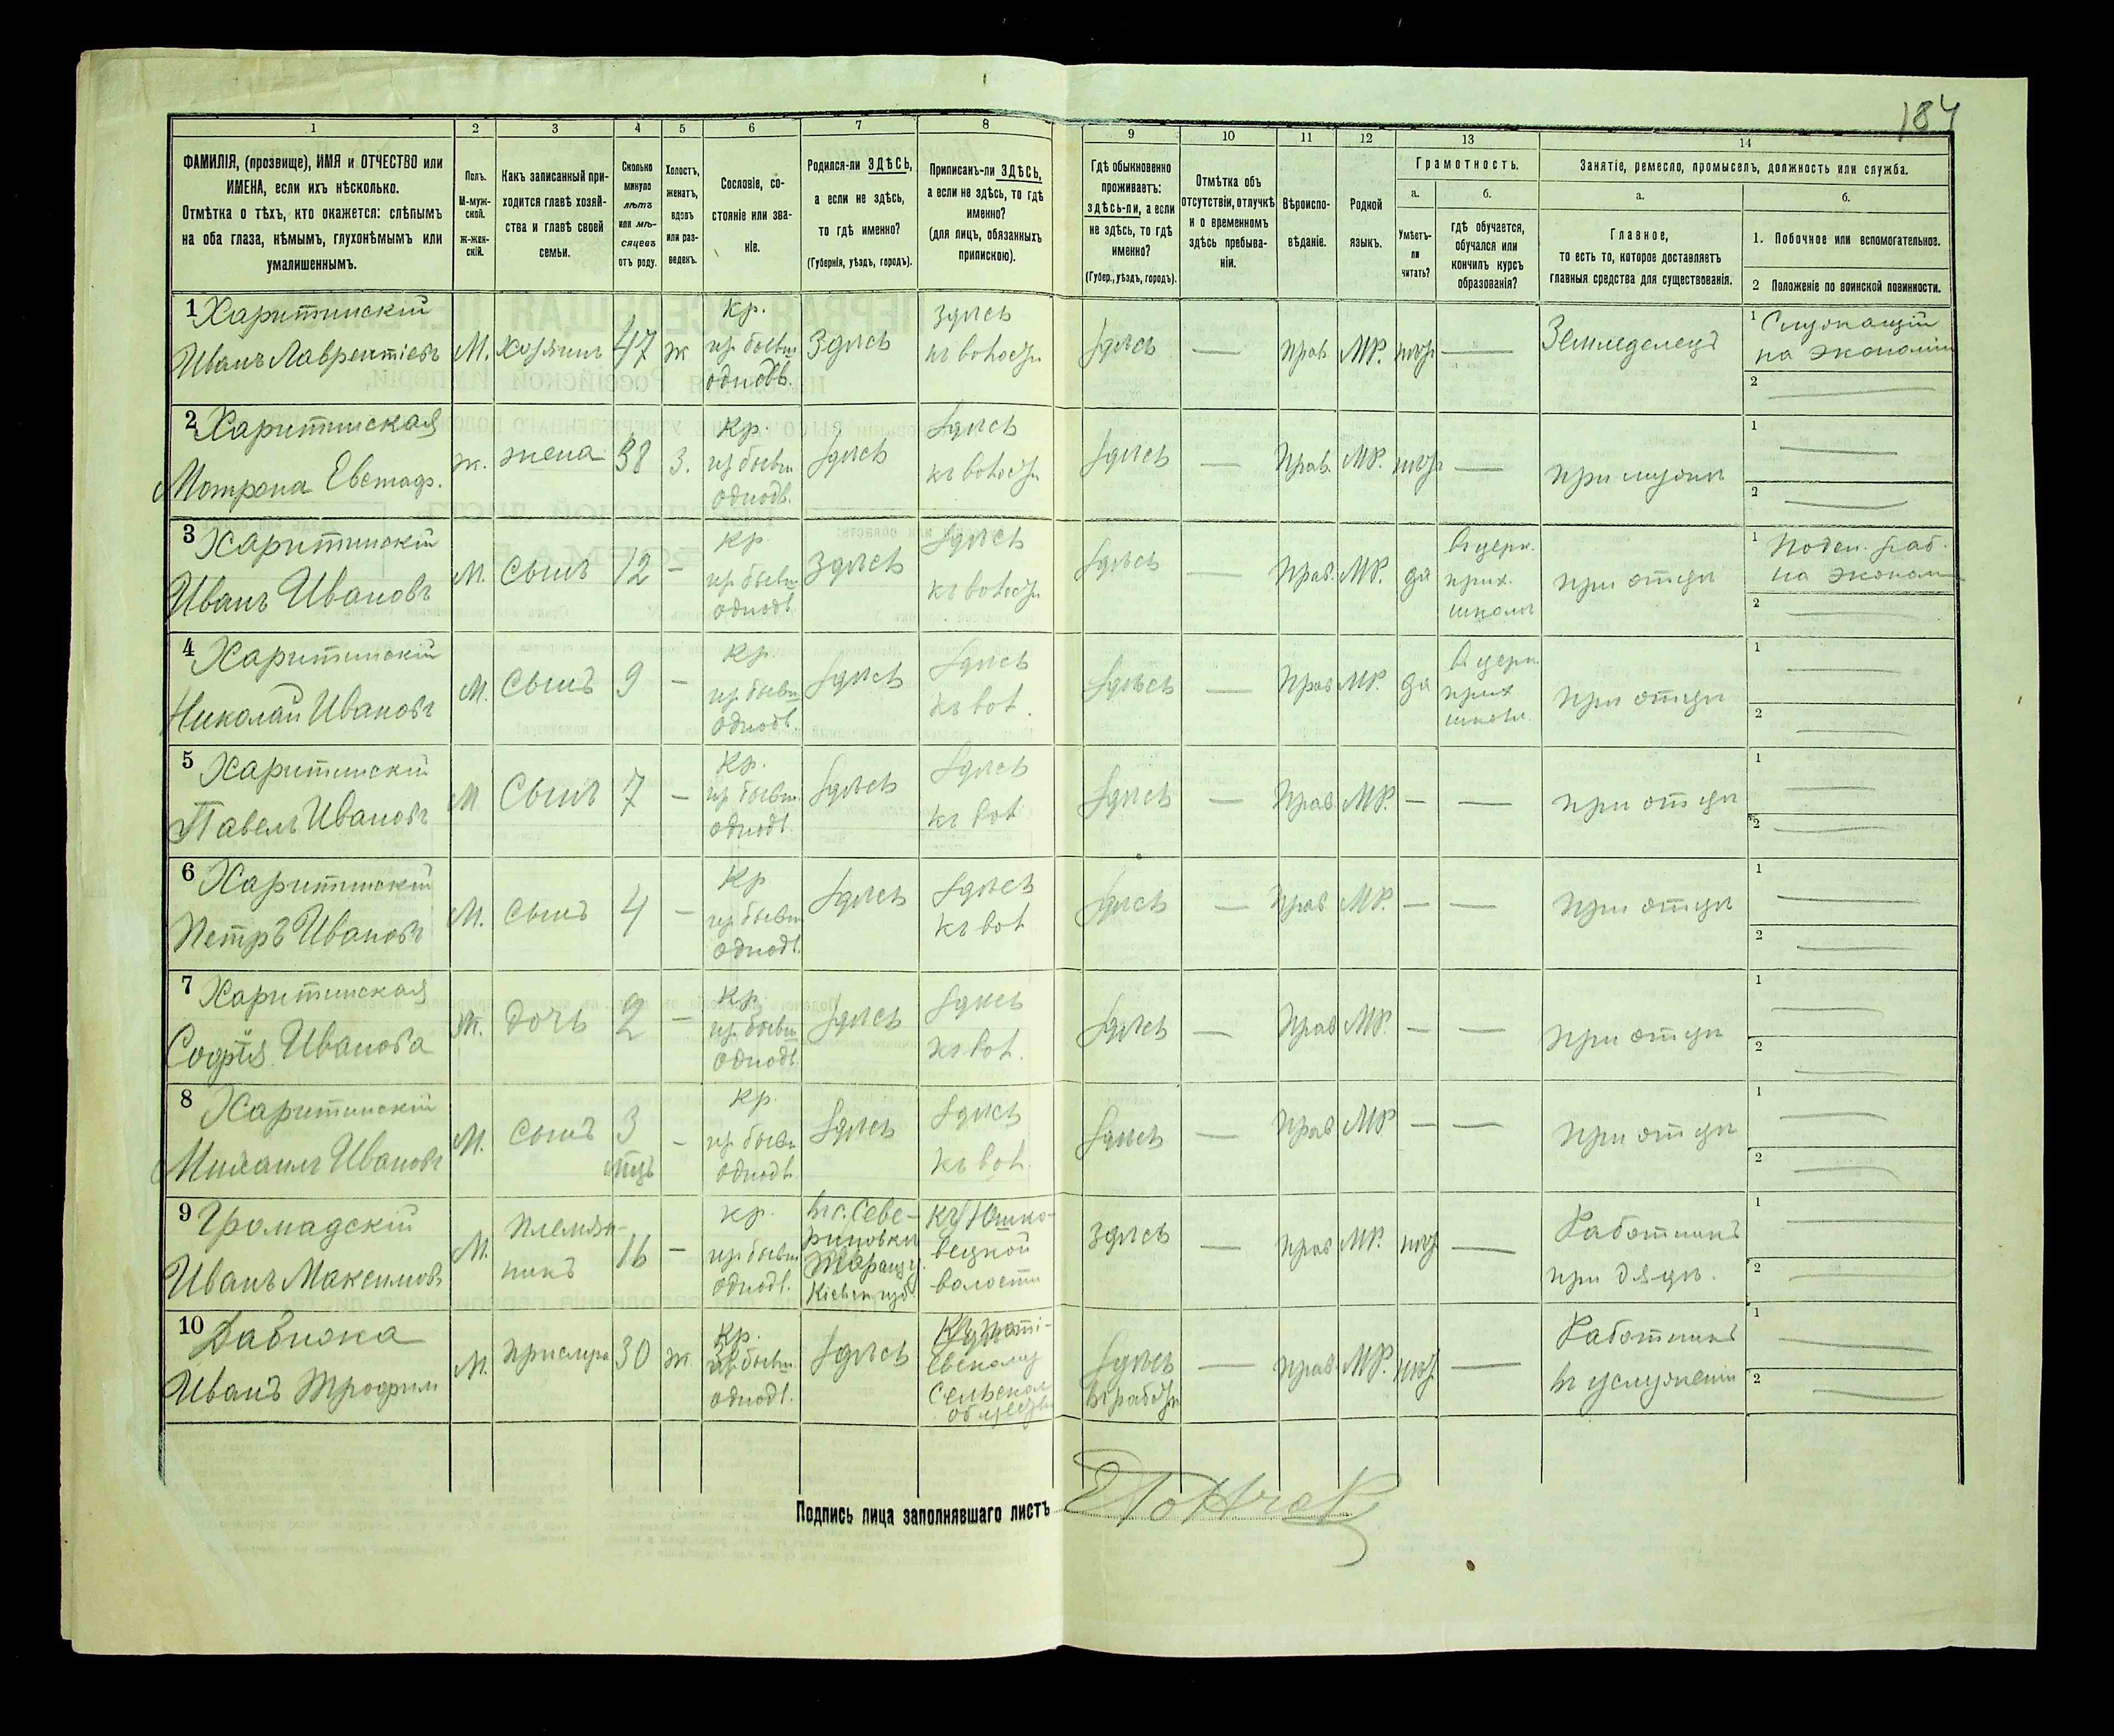 184
1 2 3 4 5 6 7 8 9 10 11 12 13 14
ФАМИЛІЯ, (прозвище), ИМЯ и ОТЧЕСТВО или
ИМЕНА, если ихъ нѣсколько.
Отмѣтка о тѣхъ, кто окажется: слѣпымъ
на оба глаза, нѣмымъ, глухонѣмымъ или
умалишеннымъ.
Полъ.
М-муж-
ской.
ж-жен-
скій.
Какъ записанный при-
ходится главѣ хозяй-
ства и главѣ своей
семьи.
Сколько
минуло
лѣтъ
или мѣ-
сяцевъ
отъ роду.
Холостъ,
женатъ,
вдовъ
или раз-
веденъ.
Сословіе, со-
стояніе или зва-
ніе.
Родился-ли ЗДѢСЬ,
а если не здѣсь,
то гдѣ именно?
(Губернія, уѣздъ, городъ).
Приписанъ-ли ЗДѢСЬ,
а если не здѣсь, то гдѣ
именно?
(для лицъ, обязанныхъ
припискою).
Гдѣ обыкновенно
проживаетъ:
здѣсь-ли, а если
не здѣсь, то гдѣ
именно?
(Губер., уѣздъ, городъ).
Отмѣтка объ
отсутствіи, отлучкѣ
и о временномъ
здѣсь пребыва-
ніи.
Вѣроиспо-
вѣданіе.
Родной
языкъ.
Грамотность.
а.
Умѣетъ-
ли
читать?
б.
гдѣ обучается,
обучался или
кончилъ курсъ
образованія?
Занятіе, ремесло, промыселъ, должность или служба.
а.
Главное,
то есть то, которое доставляетъ
главныя средства для существованія.
б.
1. Побочное или вспомогательное.
2 Положеніе по воинской повинности.
1 Харитинскій
Иванъ Лаврентіевъ М. хозяинъ 47 ж
кр.
из бывш
однодв.
Здѣсь
здѣсь
Здѣсь — прав. МР. —
Земледелецъ
1 Служащій
на экономіи
2
2 Харитинская
Мотрона Евстаф. ж. жена 38 з.
кр.
из бывш
однодв.
Здѣсь
Здѣсь
Здѣсь — Прав. МР. —
при мужѣ
1
2
3 Харитинскій
Иванъ Ивановъ М. Сынъ 12 —
кр.
из бывш
однодв.
Здѣсь
Здѣсь
Здѣсь — Прав. МР. да
прих.
школѣ
при отцѣ
1 Поден. раб.
на эконом
2
4 Харитинскій
Николай Ивановъ М. Сынъ 9 —
кр.
из бывш
однодв.
Здѣсь
Здѣсь
къ вол.
Здѣсь — Прав МР. да
прих
школ.
при отцѣ
1
2
5 Харитинскій
Павелъ Ивановъ М Сынъ 7 —
кр.
из бывш.
однодв.
Здѣсь
Здѣсь
къ вол
Здѣсь — Прав. МР. — —
при отцѣ
1
2
6 Харитинскій
Петръ Ивановъ М. сынъ 4 —
кр
из бывш
однодв.
Здѣсь
Здѣсь
къ вол
Здѣсь — Прав МР. — —
при отцѣ
1
2
7 Харитинская
Софія Иванова ж. дочь 2 —
кр.
из бывш
однодв.
Здѣсь
Здѣсь
къ вол.
Здѣсь — Прав МР. — —
при отцѣ
1
2
8 Харитинскій
Михаилъ Ивановъ М. сынъ 3
мѣсц —
кр.
из бывш
однодв.
Здѣсь
Здѣсь
къ вол.
Здѣсь — прав МР — —
при отцѣ
1
2
9 Громадскій
Иванъ Максимовъ М.
племян-
никъ
16 —
кр.
из бывш
однодв.
въ с. Севе-
риновки
Таращ у.
Кіевск губ
къ Юшко-
вецкой
волости
здѣсь — прав МР. —
Работникъ
при дядѣ.
1
2
10 Давиока
Иванъ Трофим М. прислуга 30 ж
кр.
из бывш.
однодв.
Здѣсь
Сельском
обществѣ
Здѣсь
— прав МР. —
Работникъ
въ услуженіи
1
2
Подпись лица заполнявшаго листъ